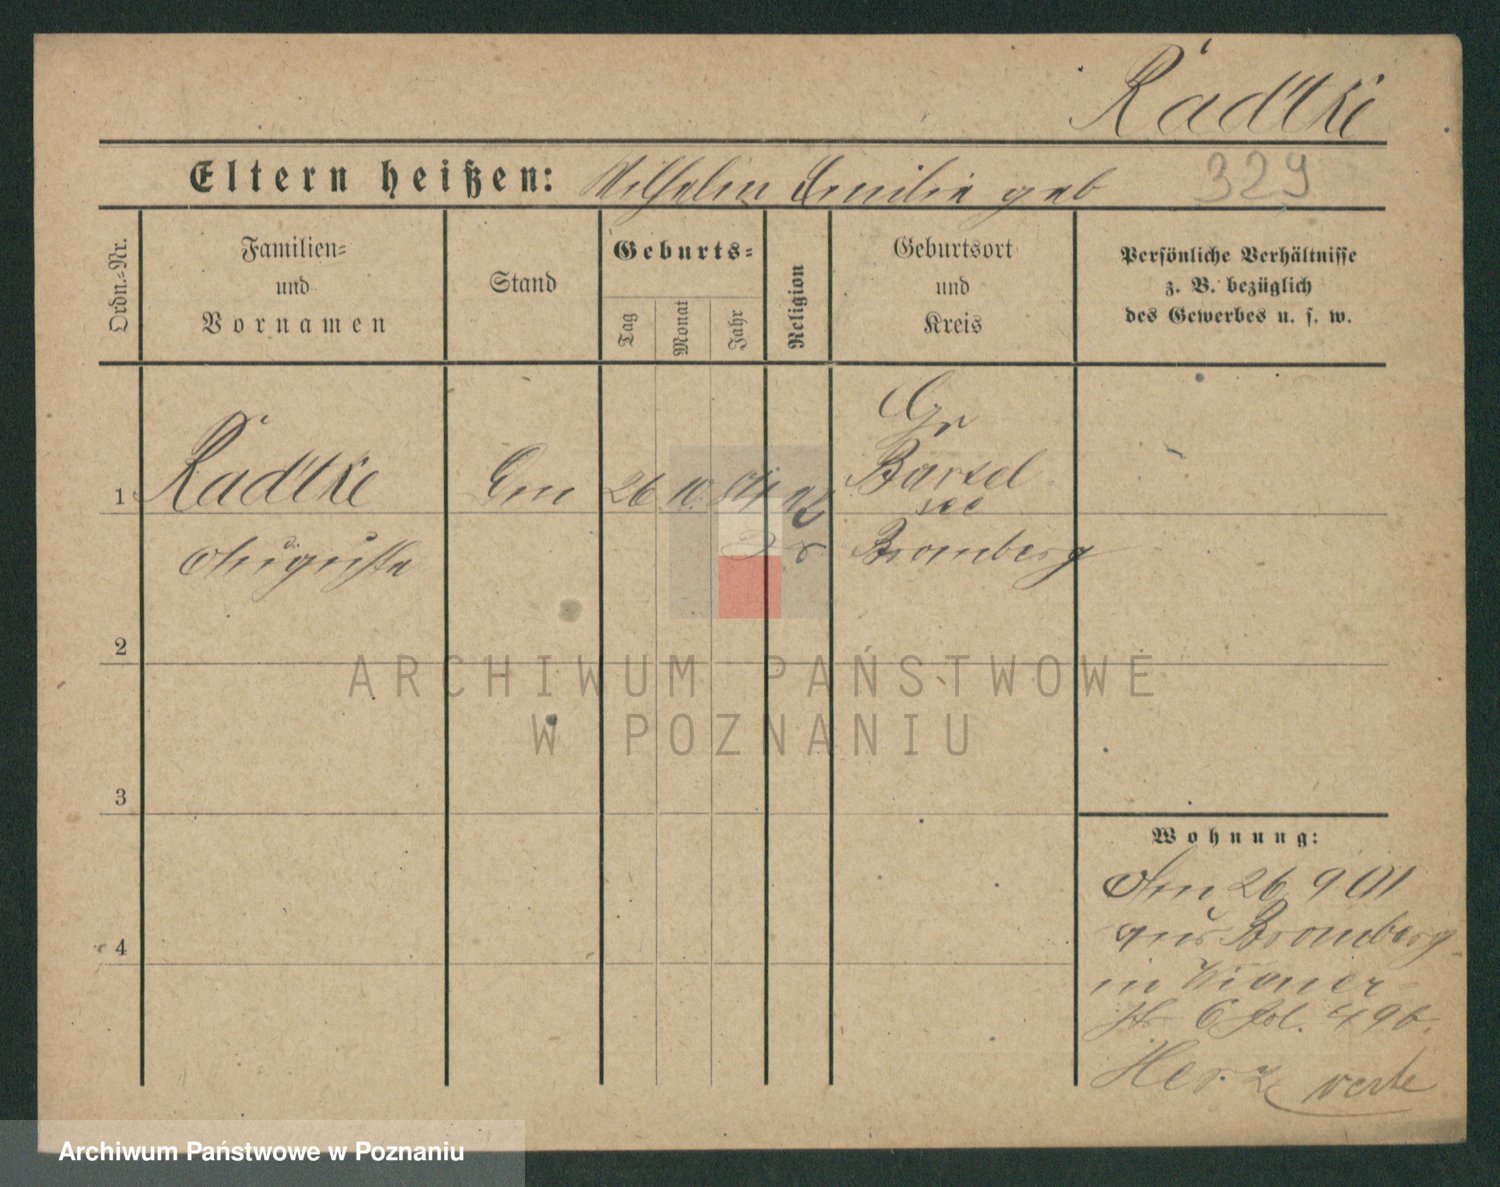 Radtke
Eltern heißen: Wilhelm Emilie geb
329
Ordn.=Nr.
Familien=
und
Vornamen
Stand
Geburts=
Tag
Monat
Jahr
Religion
Geburtsort
und
Kreis
Persönliche Verhältnisse
z. B. bezüglich
des Gewerbes u. s. w.
1
Radtke
26 10
Gr
Bartel
see
Auguste
Bromberg
2
3
4
Wohnung:
Am 26 9 01
aus Bromberg
in
6 fol. 496.
verte
ARCHIWUM PAŃSTWOWE
W POZNANIU
Archiwum Państwowe w Poznaniu